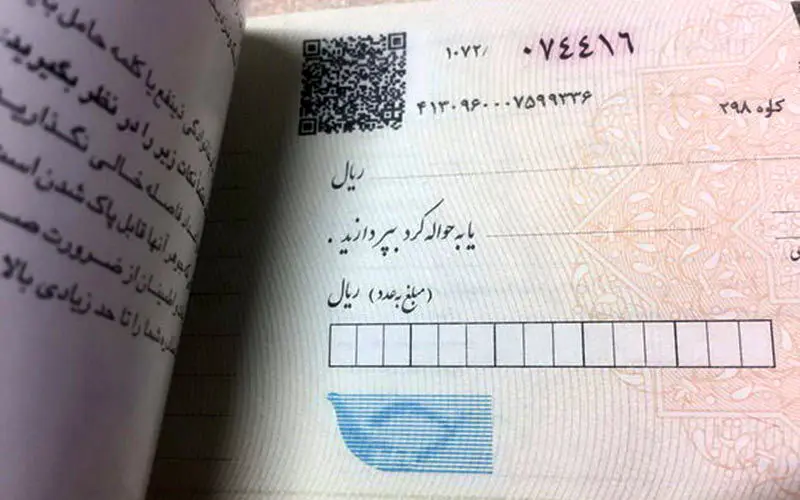 ۱۰۷۲/ ۰۷۴۴۱۶
۴۱۳۰۹۶۰۰۰۷۵۹۹۳۳۶
کاوه ۲۹۸
ریال
یا به حواله کرد بپردازید .
(مبلغ به عدد) ریال
ذینفع یا کلمه حامل
نکات زیر را در نظر بگیرید:
فاصله خالی نگذارید
جوهر آنها قابل پاک شدن است
اطمینان از ضرورت
شما را تا حد زیادی بالا